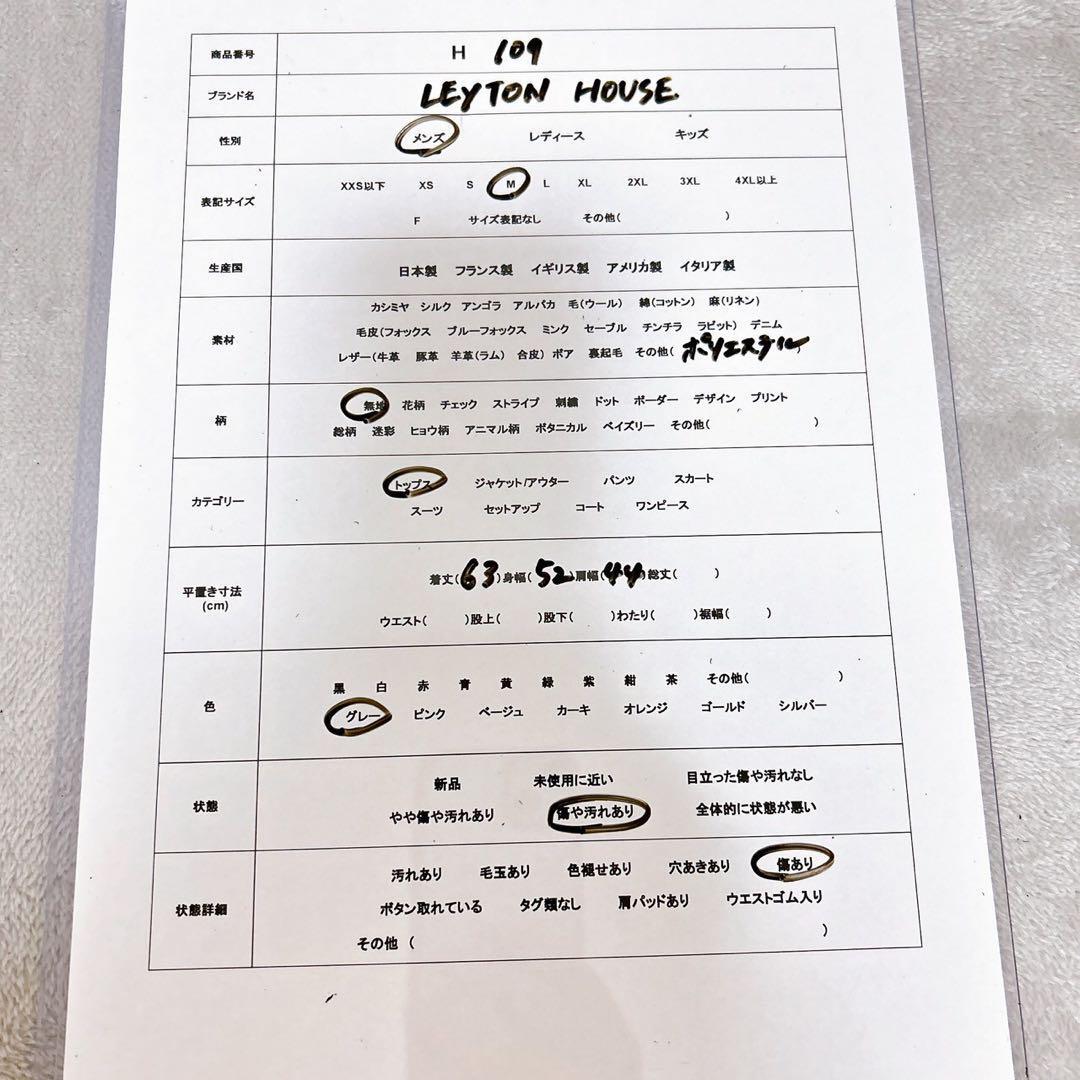 商品番号 H 109
ブランド名 LEYTON HOUSE.
性別 メンズ レディース キッズ
表記サイズ XXS以下 XS S M L XL 2XL 3XL 4XL以上
F サイズ表記なし その他( )
生産国 日本製 フランス製 イギリス製 アメリカ製 イタリア製
素材 カシミヤ シルク アンゴラ アルパカ 毛(ウール) 綿(コットン) 麻(リネン)
毛皮(フォックス ブルーフォックス ミンク セーブル チンチラ ラビット) デニム
レザー(牛革 豚革 羊革(ラム) 合皮) ボア 裏起毛 その他( ポリエステル )
柄 無地 花柄 チェック ストライプ 刺繍 ドット ボーダー デザイン プリント
総柄 迷彩 ヒョウ柄 アニマル柄 ボタニカル ペイズリー その他( )
カテゴリー トップス ジャケット/アウター パンツ スカート
スーツ セットアップ コート ワンピース
平置き寸法
(cm) 着丈( 63 )身幅( 52 )肩幅( 44 )総丈( )
ウエスト( )股上( )股下( )わたり( )裾幅( )
色 黒 白 赤 青 黄 緑 紫 紺 茶 その他( )
グレー ピンク ベージュ カーキ オレンジ ゴールド シルバー
状態 新品 未使用に近い 目立った傷や汚れなし
やや傷や汚れあり 傷や汚れあり 全体的に状態が悪い
状態詳細 汚れあり 毛玉あり 色褪せあり 穴あきあり 傷あり
ボタン取れている タグ類なし 肩パッドあり ウエストゴム入り
その他 ( )